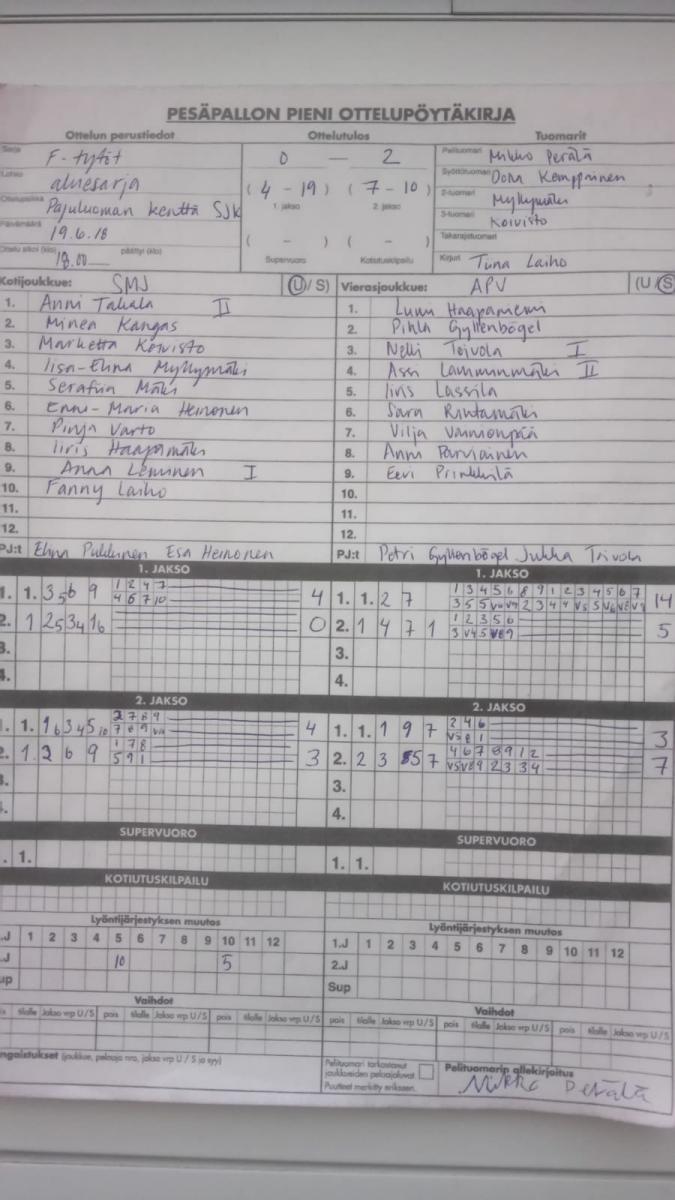 PESÄPALLON PIENI OTTELUPÖYTÄKIRJA
Ottelun perustiedot Ottelutulos Tuomarit
Sarja F-tytöt
Lohko aluesarja
Ottelupaikka Pajuluoman kenttä SJK
Päivämäärä 19.6.18
Ottelu alkoi (klo) 18.00 päättyi (klo)
0 – 2
(4 - 19) (7 - 10)
1. jakso 2. jakso
( - ) ( - )
Supervuoro Kotiutuskilpailu
Pelituomari Mikko Perälä
Syöttötuomari Kemppainen
2-tuomari Myllymäki
3-tuomari Koivisto
Takarajatuomari
Kirjuri Tuna Laiho
Kotijoukkue: SMJ (U/S)
1. Anni Takala II
2. Minea Kangas
3. Marketta Koivisto
4. Iisa-Elina Myllymäki
5. Serafiina Mäki
6. Enni-Maria Heinonen
7. Pinja Varto
8. Iiris Haapamäki
9. Anna Leminen I
10. Fanny Laiho
11.
12.
PJ:t Elina Pukkinen Esa Heinonen
Vierasjoukkue: APV (U/S)
1. Lumi Haapaniemi
2. Pihla Gyllenbögel
3. Nelli Toivola I
4. Assi Lamminmäki II
5. Iiris Lassila
6. Sara Rintamäki
7. Vilja Vainionpää
8. Anni Parviainen
9. Eevi Prinkkilä
10.
11.
12.
PJ:t Petri Gyllenbögel Jukka Toivola
1. JAKSO
1. 1. 3 5 6 9 1 2 4 7 4
4 6 7 10
2. 1 2 5 3 4 1 6 0
3.
4.
1. JAKSO
1. 1. 2 7 1 3 4 5 6 8 9 1 2 3 4 5 6 7 14
2. 1 4 7 1 1 2 3 5 6 5
3 V4 5 V8 9
3.
4.
2. JAKSO
1. 1. 1 6 3 4 5 10 2 7 8 9 4
2. 1 2 6 9 1 7 8 3
5 9 1
2. JAKSO
1. 1. 1 9 7 2 4 6 3
V5 8 1
2. 2 3 5 7 4 6 7 8 9 1 2 7
V5 V8 9 2 3 3 4
3.
4.
SUPERVUORO
1. 1.
SUPERVUORO
1. 1.
KOTIUTUSKILPAILU
KOTIUTUSKILPAILU
Lyöntijärjestyksen muutos
.J 1 2 3 4 5 6 7 8 9 10 11 12
.J 10 5
up
Lyöntijärjestyksen muutos
1.J 1 2 3 4 5 6 7 8 9 10 11 12
2.J
Sup
Vaihdot
is tilalle Jakso vrp U/S pois tilalle Jakso vrp U/S pois tilalle Jakso vrp U/S
Vaihdot
pois tilalle Jakso vrp U/S pois tilalle Jakso vrp U/S pois tilalle Jakso vrp U/S
ngaistukset (joukkue, pelaaja nro, jakso vrp U / S ja syy)
Pelituomari tarkastanut
joukkueiden pelaajaluvat.
Puutteet merkitty erikseen.
Pelituomarin allekirjoitus
Mikko Perälä